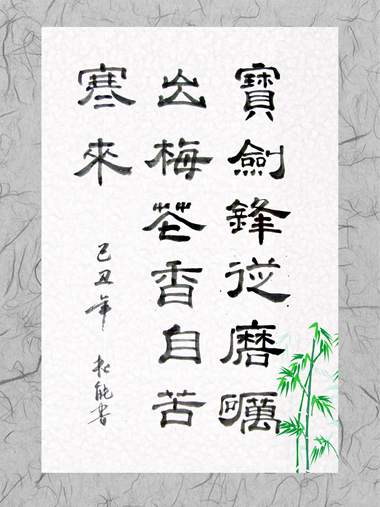 寶劍鋒從磨礪
出梅花香自苦
寒來
己丑年 能書